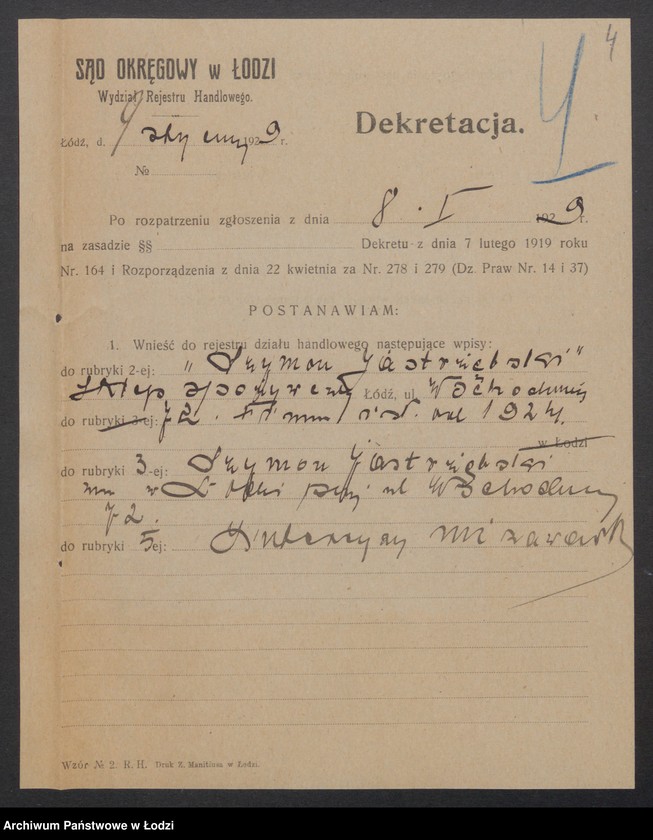 4
SĄD OKRĘGOWY w ŁODZI
Wydział Rejestru Handlowego.
Łódź, d. 9 stycznia 1929 r.
Dekretacja.
№
Po rozpatrzeniu zgłoszenia z dnia 8. I 1929 r.
na zasadzie §§ Dekretu z dnia 7 lutego 1919 roku
Nr. 164 i Rozporządzenia z dnia 22 kwietnia za Nr. 278 i 279 (Dz. Praw Nr. 14 i 37)
POSTANAWIAM:
1. Wnieść do rejestru działu handlowego następujące wpisy:
do rubryki 2-ej: „Szymon Jastrzębski"
sklep spożywczy Łódź, ul. Wschodnia
do rubryki 3-ej: 72. Firma istn. od 1924.
w Łodzi
do rubryki 3-ej: Szymon Jastrzębski
zam. w Łodzi przy ul. Wschodniej
72.
do rubryki 5ej: Intercyzy nie zawarł
Wzór № 2. R. H. Druk Z. Manitius w Łodzi.
Archiwum Państwowe w Łodzi